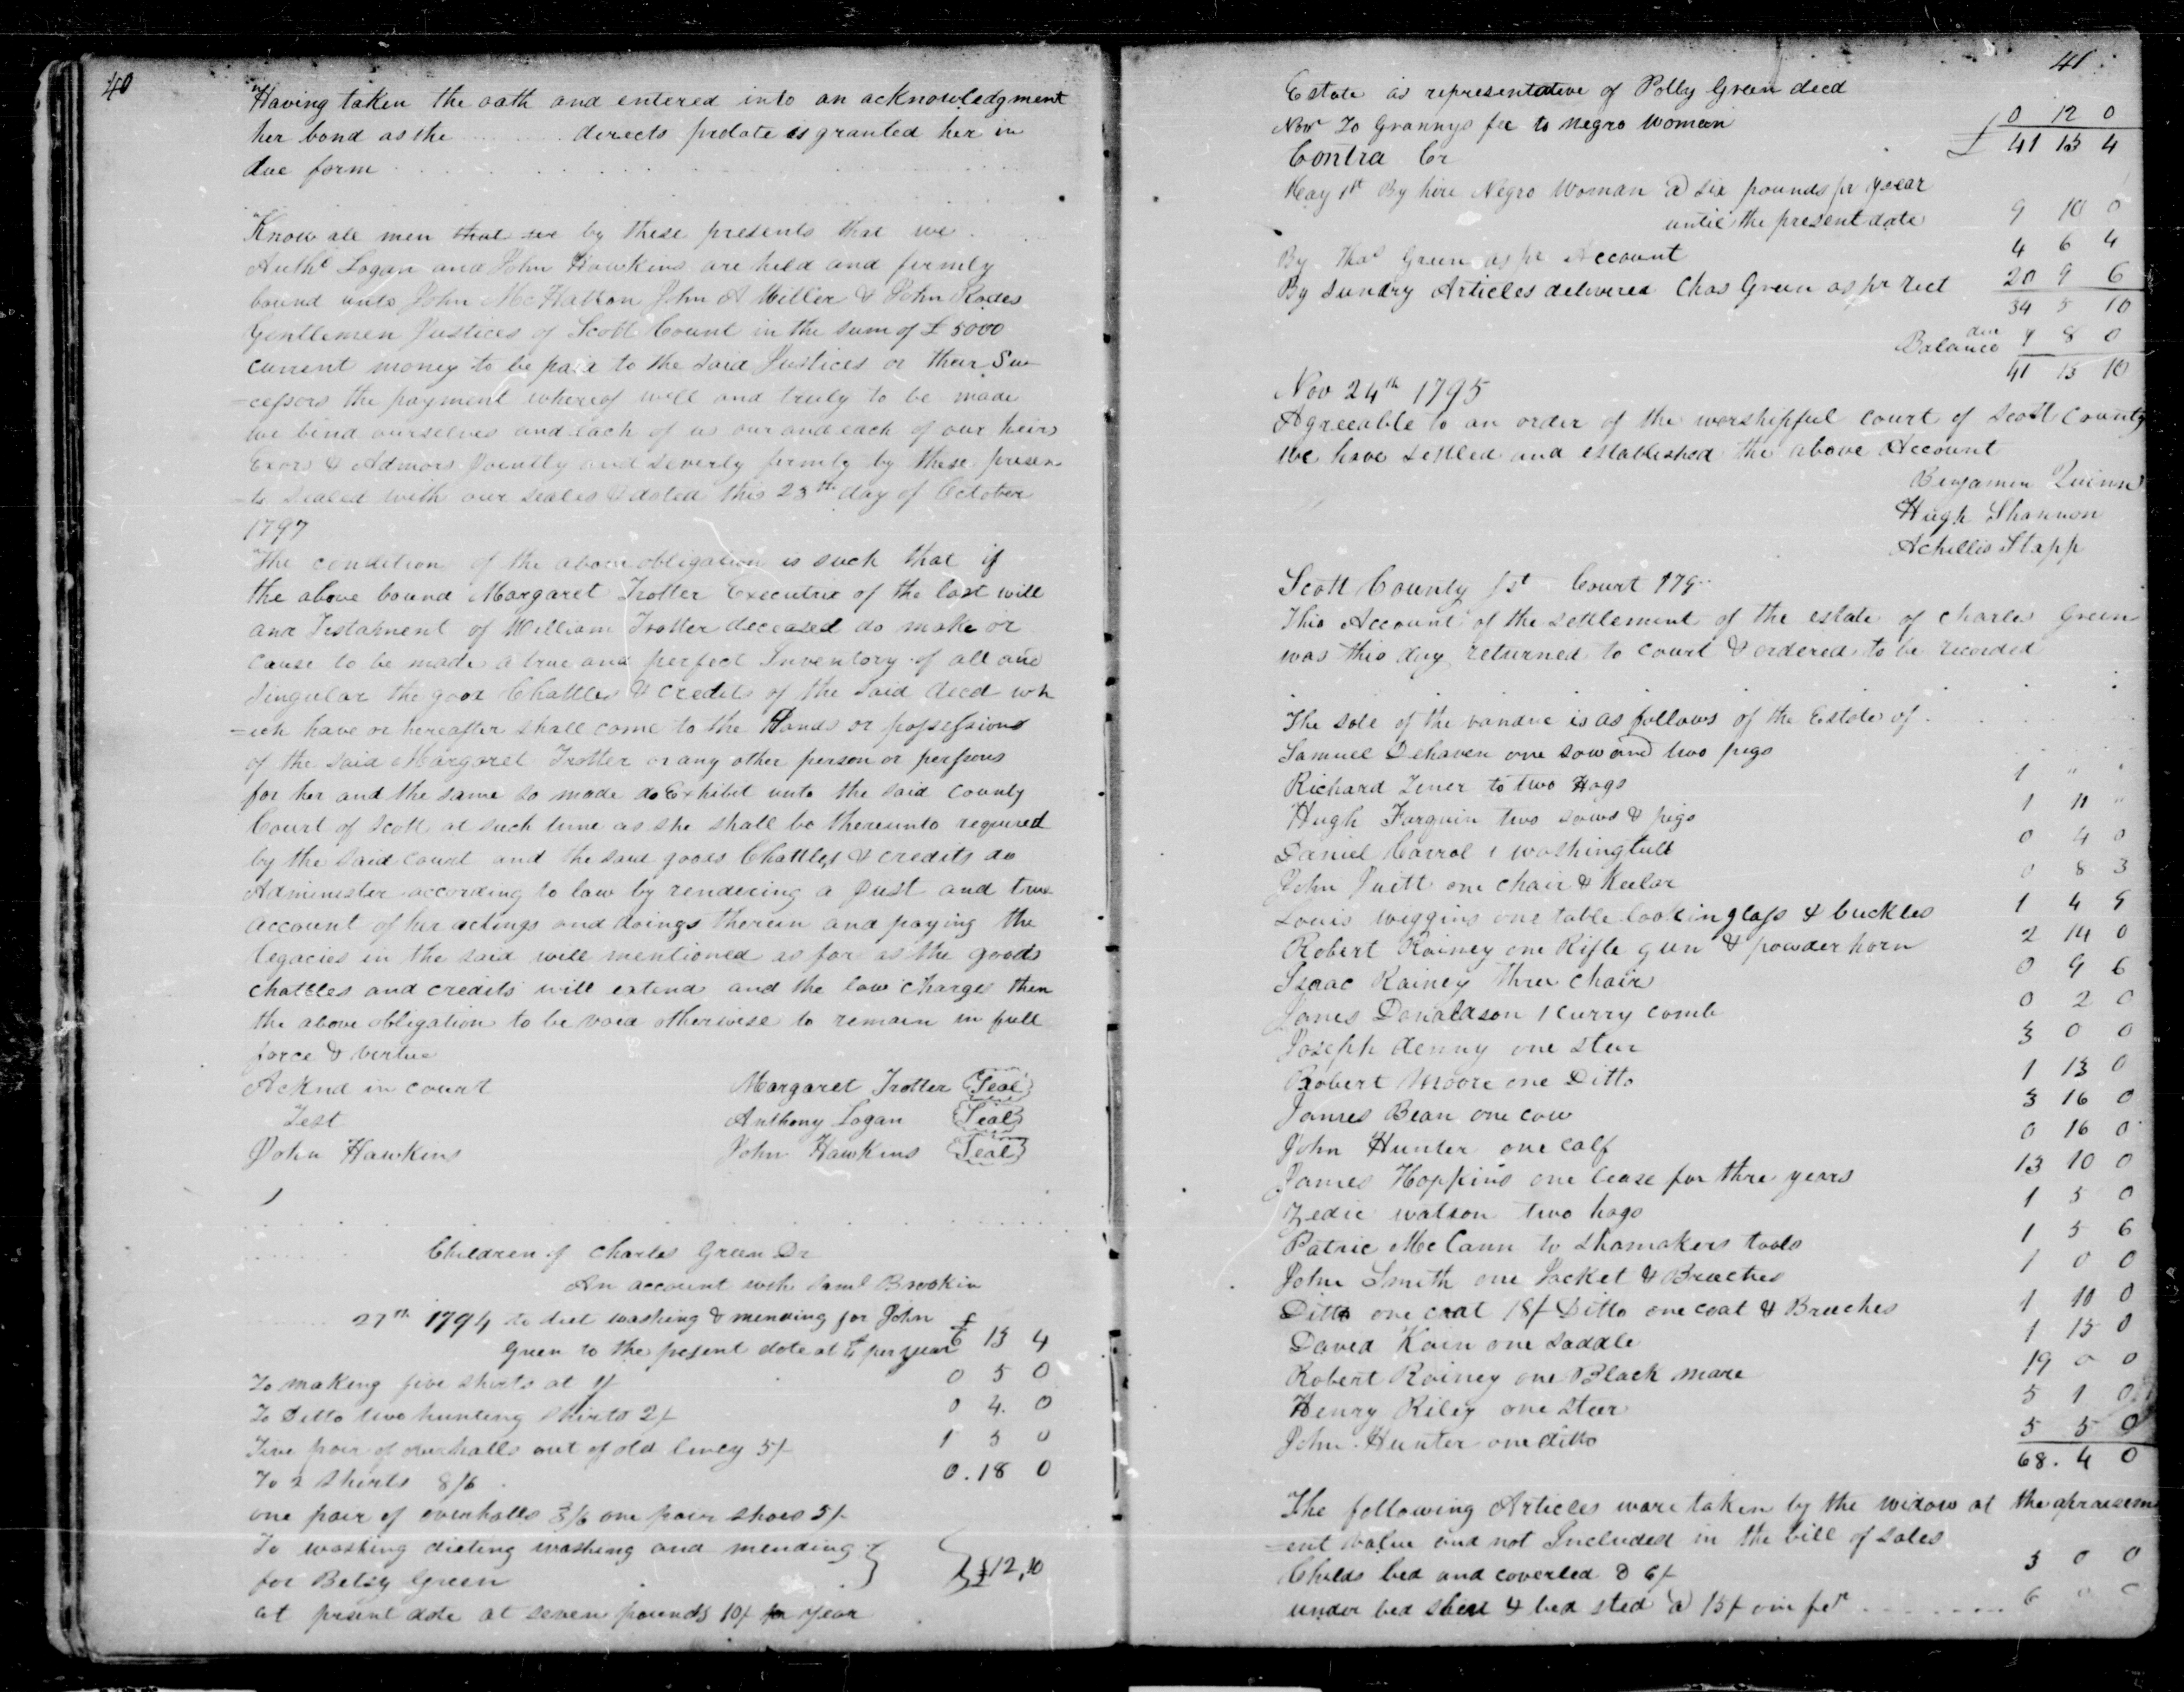 40
Having taken the oath and entered into an acknowledgment
her bond as the ........ directs probate is granted her in
due form
Know all men that we by these presents that we
Anthy Logan and John Hawkins are held and firmly
bound unto John McHatton John A Miller & John Rodes
Gentlemen Justices of Scott Count in the sum of £ 5000
current money to be paid to the said Justices or their Suc
=cessors the payment whereof well and truly to be made
we bind ourselves and each of us our and each of our heirs
Exors & Admors Jointly and severly firmly by these presen
=ts sealed with our seales & dated this 23th day of October
1797
The condition of the above obligation is such that if
the above bound Margaret Trotter Executrix of the last will
and Testament of William Trotter deceased do make or
cause to be made a true and perfect Inventory of all and
singular the good Chattles & credits of the said decd wh
=ich have or hereafter shall come to the Hands or possessions
of the said Margaret Trotter or any other person or persons
for her and the same so made do Exhibit unto the said county
Court of Scott at such time as she shall be thereunto required
by the said court and the said goods Chattles & credits do
Administer according to law by rendering a Just and true
account of her actings and doings therein and paying the
legacies in the said will mentioned as far as the goods
chattles and credits will extend and the law charges then
the above obligation to be void otherwise to remain in full
force & virtue
Acknd in court Margaret Trotter Seal
Test Anthony Logan Seal
John Hawkins John Hawkins Seal
Children of Charles Green Dr
An account with Saml Brookin
27th 1794 to diet washing & mending for John £
Green to the present date at per year 6 13 4
To making five shirts at 1/ 0 5 0
To Ditto two hunting shirts 2/ 0 4 0
Five pair of overhalls out of old lincy 5/ 1 5 0
To 2 shirts 8/6 0.18 0
one pair of overhalls 3/6 one pair shoes 5/
To washing dieting washing and mending
for Betsy Green £12,10
at present date at seven pounds 10/ per year
41
Estate as representative of Polly Green decd
Novr To Grannys fee to negro woman 0 12 0
Contra Cr £ 41 13 4
May 1st By hire Negro Woman @ six pounds pr year
until the present date 9 10 0
By Thos Green as pr Account 4 6 4
By sundry Articles delivered Chas Green as pr rect 20 9 6
34 5 10
Balance due 7 8 0
41 13 10
Nov 24th 1795
Agreeable to an order of the worshipful court of Scott County
we have settled and established the above Account
Benjamin Quinn
Hugh Shannon
Achillis Stapp
Scott County Sst Court 179..
This Account of the settlement of the estate of Charles Green
was this day returned to court & ordered to be recorded
The sale of the vandue is as follows of the Estate of
Samuel Dehaven one sow and two pigs
Richard Zener to two Hogs 1 " "
Hugh Farguin two sows & pigs 1 11 "
Daniel Carrol 1 washingtub 0 4 0
John Pruitt one chair & Keelar 0 8 3
Louis wiggins one table lookinglass & buckles 1 4 9
Robert Rainey one Rifle gun & powder horn 2 14 0
Isaac Rainey three chairs 0 9 6
James Donaldson 1 curry comb 0 2 0
Joseph denny one steer 3 0 0
Robert Moore one Ditto 1 13 0
James Bean one cow 3 16 0
John Hunter one calf 0 16 0
James Hoppins one lease for thre years 13 10 0
Zedic watson two hogs 1 5 0
Patric McCann to shomakers tools 1 5 6
John Smith one Jacket & Breaches 1 0 0
Ditto one coat 18/ Ditto one coat & Breeches 1 10 0
David Kain one saddle 1 15 0
Robert Rainey one Black mare 19 0 0
Henry Riley one steer 5 1 0
John Hunter one ditto 5 5 0
68. 4 0
The following Articles ware taken by the widow at the apraisem
=ent value and not Included in the bill of sales
Childs bed and coverled @ 6/ 3 0 0
under bed sheet & bed sted @ 15/ 6 0 0